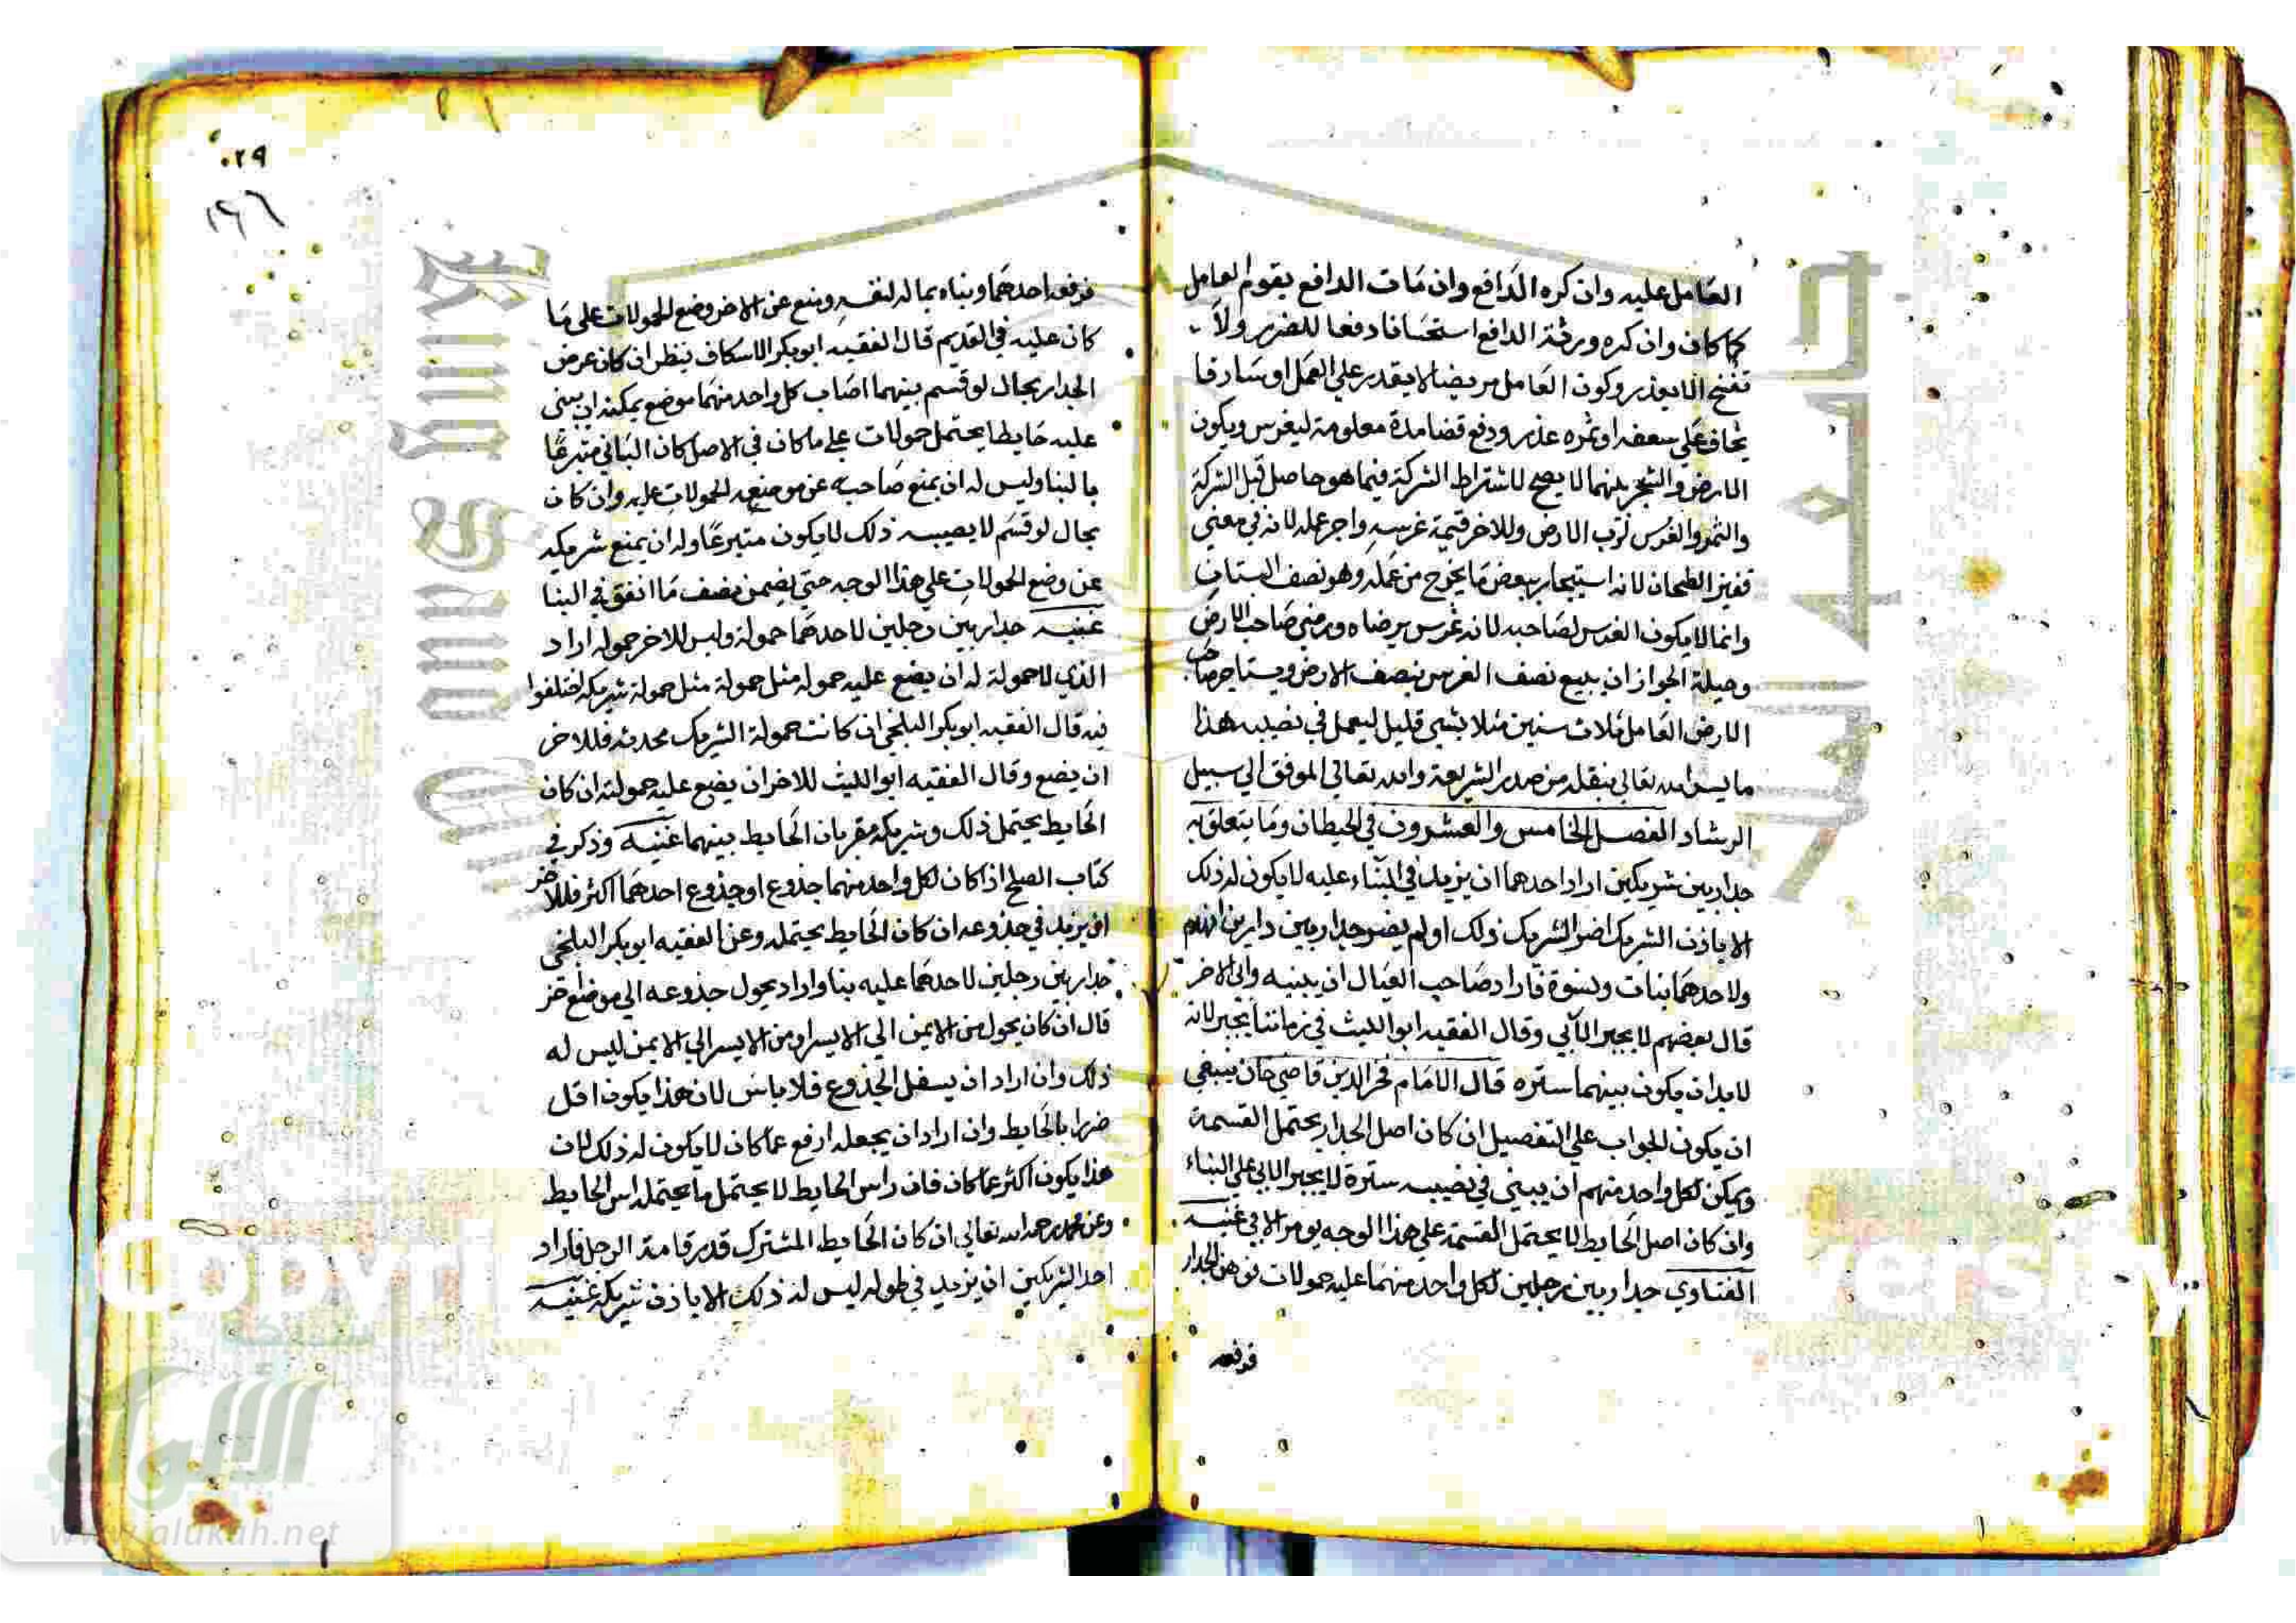 العامل عليه وان كره الدافع وان مات الدافع يقوم العامل
كما كان وان كره ورثة الدافع استحسانا دفعا للضرر ولا
تفسخ الا بعذر وكون العامل مريضا لا يقدر علي العمل او سارقا
يخاف علي سعفه او ثمره عذر ودفع فضا مدة معلومة ليغرس ويكون
الارض والشجر بينهما لا يصح لاشتراط الشركة فيما هو حاصل قبل الشركة
والثمر والغرس لرب الارض وللاخر قيمة غرسه واجر عمله لانه في معني
قفيز الطحان لانه استيجار ببعض ما يخرج من عمله وهو نصف البستان
وانما لا يكون الغرس لصاحبه لانه غرس برضاه ورضي صاحب الارض
وحيلة الجواز ان يبيع نصف الغرس بنصف الارض ويستاجر صاحب
الارض العامل ثلاث سنين مثلا بشي قليل ليعمل في نصيبه هذا
ما يسر الله تعالي بنقله من صدر الشريعة والله تعالي الموفق الي سبيل
الرشاد الفصل الخامس والعشرون في الحيطان وما يتعلق به
جدار بين شريكين اراد احدهما ان يزيد في البناء عليه لا يكون له ذلك
الا باذن الشريك اضر الشريك ذلك او لم يضر جدار بين دارين انهدم
ولاحدهما بنات ونسوة فاراد صاحب العيال ان يبنيه وابي الاخر
قال بعضهم لا يجبر الآبي وقال الفقيه ابو الليث في زماننا يجبر لانه
لا بد ان يكون بينهما ستره قال الامام فخر الدين قاضي خان ينبغي
ان يكون الجواب علي التفصيل ان كان اصل الجدار يحتمل القسمة
ويمكن لكل واحد منهم ان يبني في نصيبه سترة لا يجبر الابي علي البناء
وان كان اصل الحايط لا يحتمل القسمة علي هذا الوجه يومر الابي غنيه
الفتاوي جدار بين رجلين لكل واحد منهما عليه حمولات نوهن الجدار
فرفعه
٠٢٩
١٢٦
فرفعه احدهما وبناه بماله لنفسه ومنع عن الاخر وضع الحمولات على ما
كان عليه في القديم قال الفقيه ابو بكر الاسكاف ينظر ان كان عرض
الجدار بحال لو قسم بينهما اصاب كل واحد منهما موضع يمكنه ان يبني
عليه حايطا يحتمل حمولات علي ما كان في الاصل كان الباني متبرعا
بالبنا وليس له ان يمنع صاحبه عن موضع الحمولات عليه وان كان
بحال لو قسم لا يصيبه ذلك لا يكون متبرعا وله ان يمنع شريكه
عن وضع الحمولات علي هذا الوجه حتي يضمن نصف ما انفق في البنا
غنيه جدار بين رجلين لاحدهما حمولة وليس للاخر حموله اراد
الذي لا حمولة له ان يضع عليه حموله مثل حمولة مثل حمولة شريكه اختلفوا
فيه قال الفقيه ابو بكر البلخي ان كانت حمولة الشريك محدثه فللاخر
ان يضع وقال الفقيه ابو الليث للاخر ان يضع عليه حمولته ان كان
الحايط يحتمل ذلك وشريكه مقر بان الحايط بينهما غنيه وذكر في
كتاب الصلح اذا كان لكل واحد منهما جذوع او جذوع احدهما اكثر فللاخر
ان يزيد في جذوعه ان كان الحايط يحتمله وعن الفقيه ابو بكر البلخي
جدار بين رجلين لاحدهما عليه بنا واراد يحول جذوعه الي موضع اخر
قال ان كان يحول من الايمن الي الايسر او من الايسر الي الايمن ليس له
ذلك وان اراد ان يسفل الجذوع فلا باس لان هذا يكون اقل
ضررا بالحايط وان اراد ان يجعله ارفع عما كان لا يكون له ذلك لان
هذا يكون اكثر عما كان فان راس الحايط لا يحتمل ما يحتمله اس الحايط
وعن محمد رحمه الله تعالي ان كان الحايط المشترك قدر قامة الرجل فاراد
احد الشريكين ان يزيد في طوله ليس له ذلك الا باذن شريكه غنيه
شبكة
الألوكة
www.alukah.net